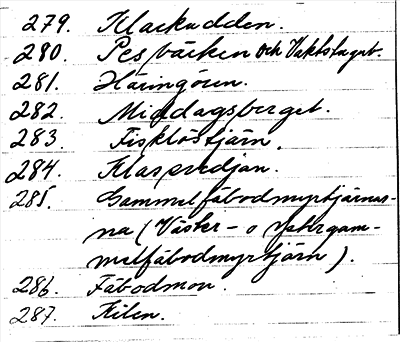 279. Klackudden.
280. Pesbäcken och Vaktstuget.
281. Häringören.
282. Middagsberget.
283. Fisklöstjärn.
284. Klaspredjan.
285. Gammelfäbodmyrtjärnar-
na (Väster- o östergam-
melfäbodmyrtjärn).
286. Fäbodmon.
287. Kilen.